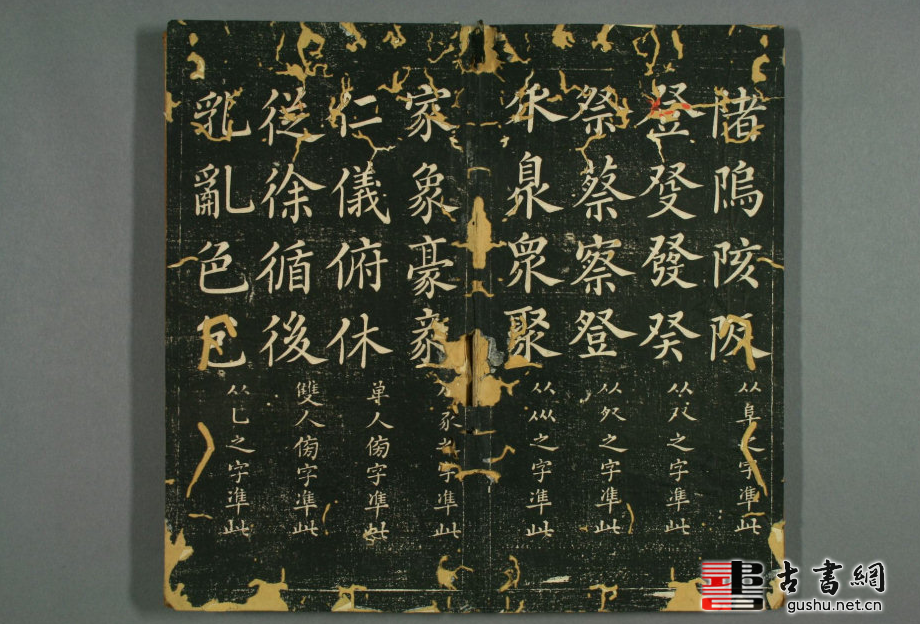 陼隖陔阪从阜之字準此
登癹發癸从癶之字準此
祭蔡察登从之字準此
乑臮眾聚从㐺之字準此
家象豪从豕之字準此
仁儀俯休单人傍字準此
從徐循後雙人傍字準此
乳亂色包从乚之字準此
古書網
gushu.net.cn